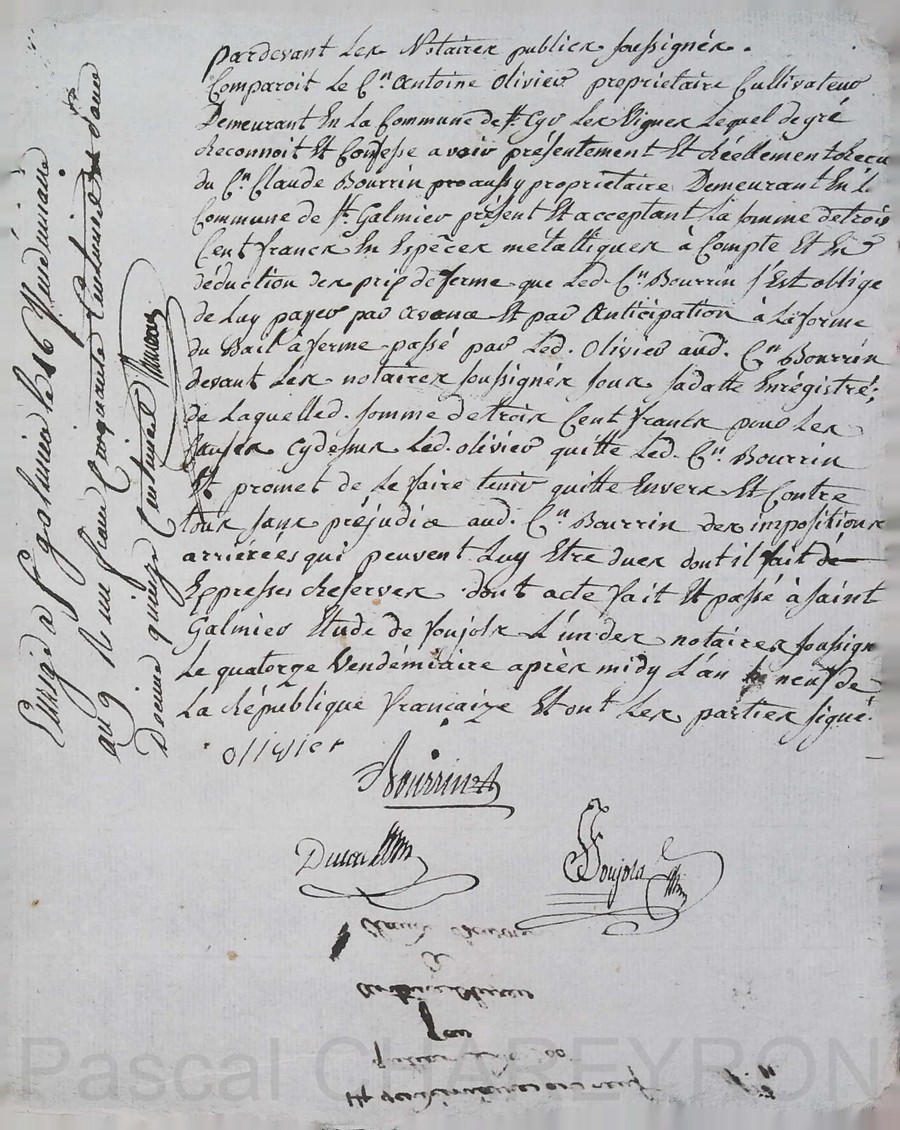 pardevant Les Notaires publics soussignés.
Comparoit Le C.n Antoine Olivier propriétaire Cultivateur
Demeurant En La Commune de St. Cyr Les Vignes Lequel de gré
Reconnoit Et Confesse avoir présentement Et Réellement Recu
du C.n Claude Bourrin pro aussy propriétaire Demeurant En la
Commune de St. Galmier présent Et acceptant La somme de trois
Cent francs En Espêces métalliques à Compte Et En
déduction des prix de ferme que Led. C.n Bourrin s'Est obligé
de Luy payer par avance Et par Anticipation à La forme
du Bail à ferme passé par Led. Olivier aud. C.n Bourrin
devant Les notaires soussignés sous sa datte Enrégistré;
de Laquelle d. somme de trois Cent francs pour Les
causes cydessus Led. olivier quitte Led. C.n Bourrin
Et promet de Le faire tenir quitte Envers Et Contre
tous sans préjudice aud. C.n Bourrin des impositions
arriérées qui peuvent Luy Etre dues dont il fait de
Expresses Reserves dont acte fait Et passé à saint
Galmier Etude de Soujols L'un des notaires soussign
Le quatorze Vendémiaire après midy L'an neuf de
La République francaize Et ont Les parties signé.
ollivier
Bourrin
Soujols
Enregé à St galmier le 16 Vendémiaire
an 9 Reçu un franc Cinquante Centimes
Decime quinze Centimes
Claude Bourrin
&
antoine olivier
Pascal CHAREYRON